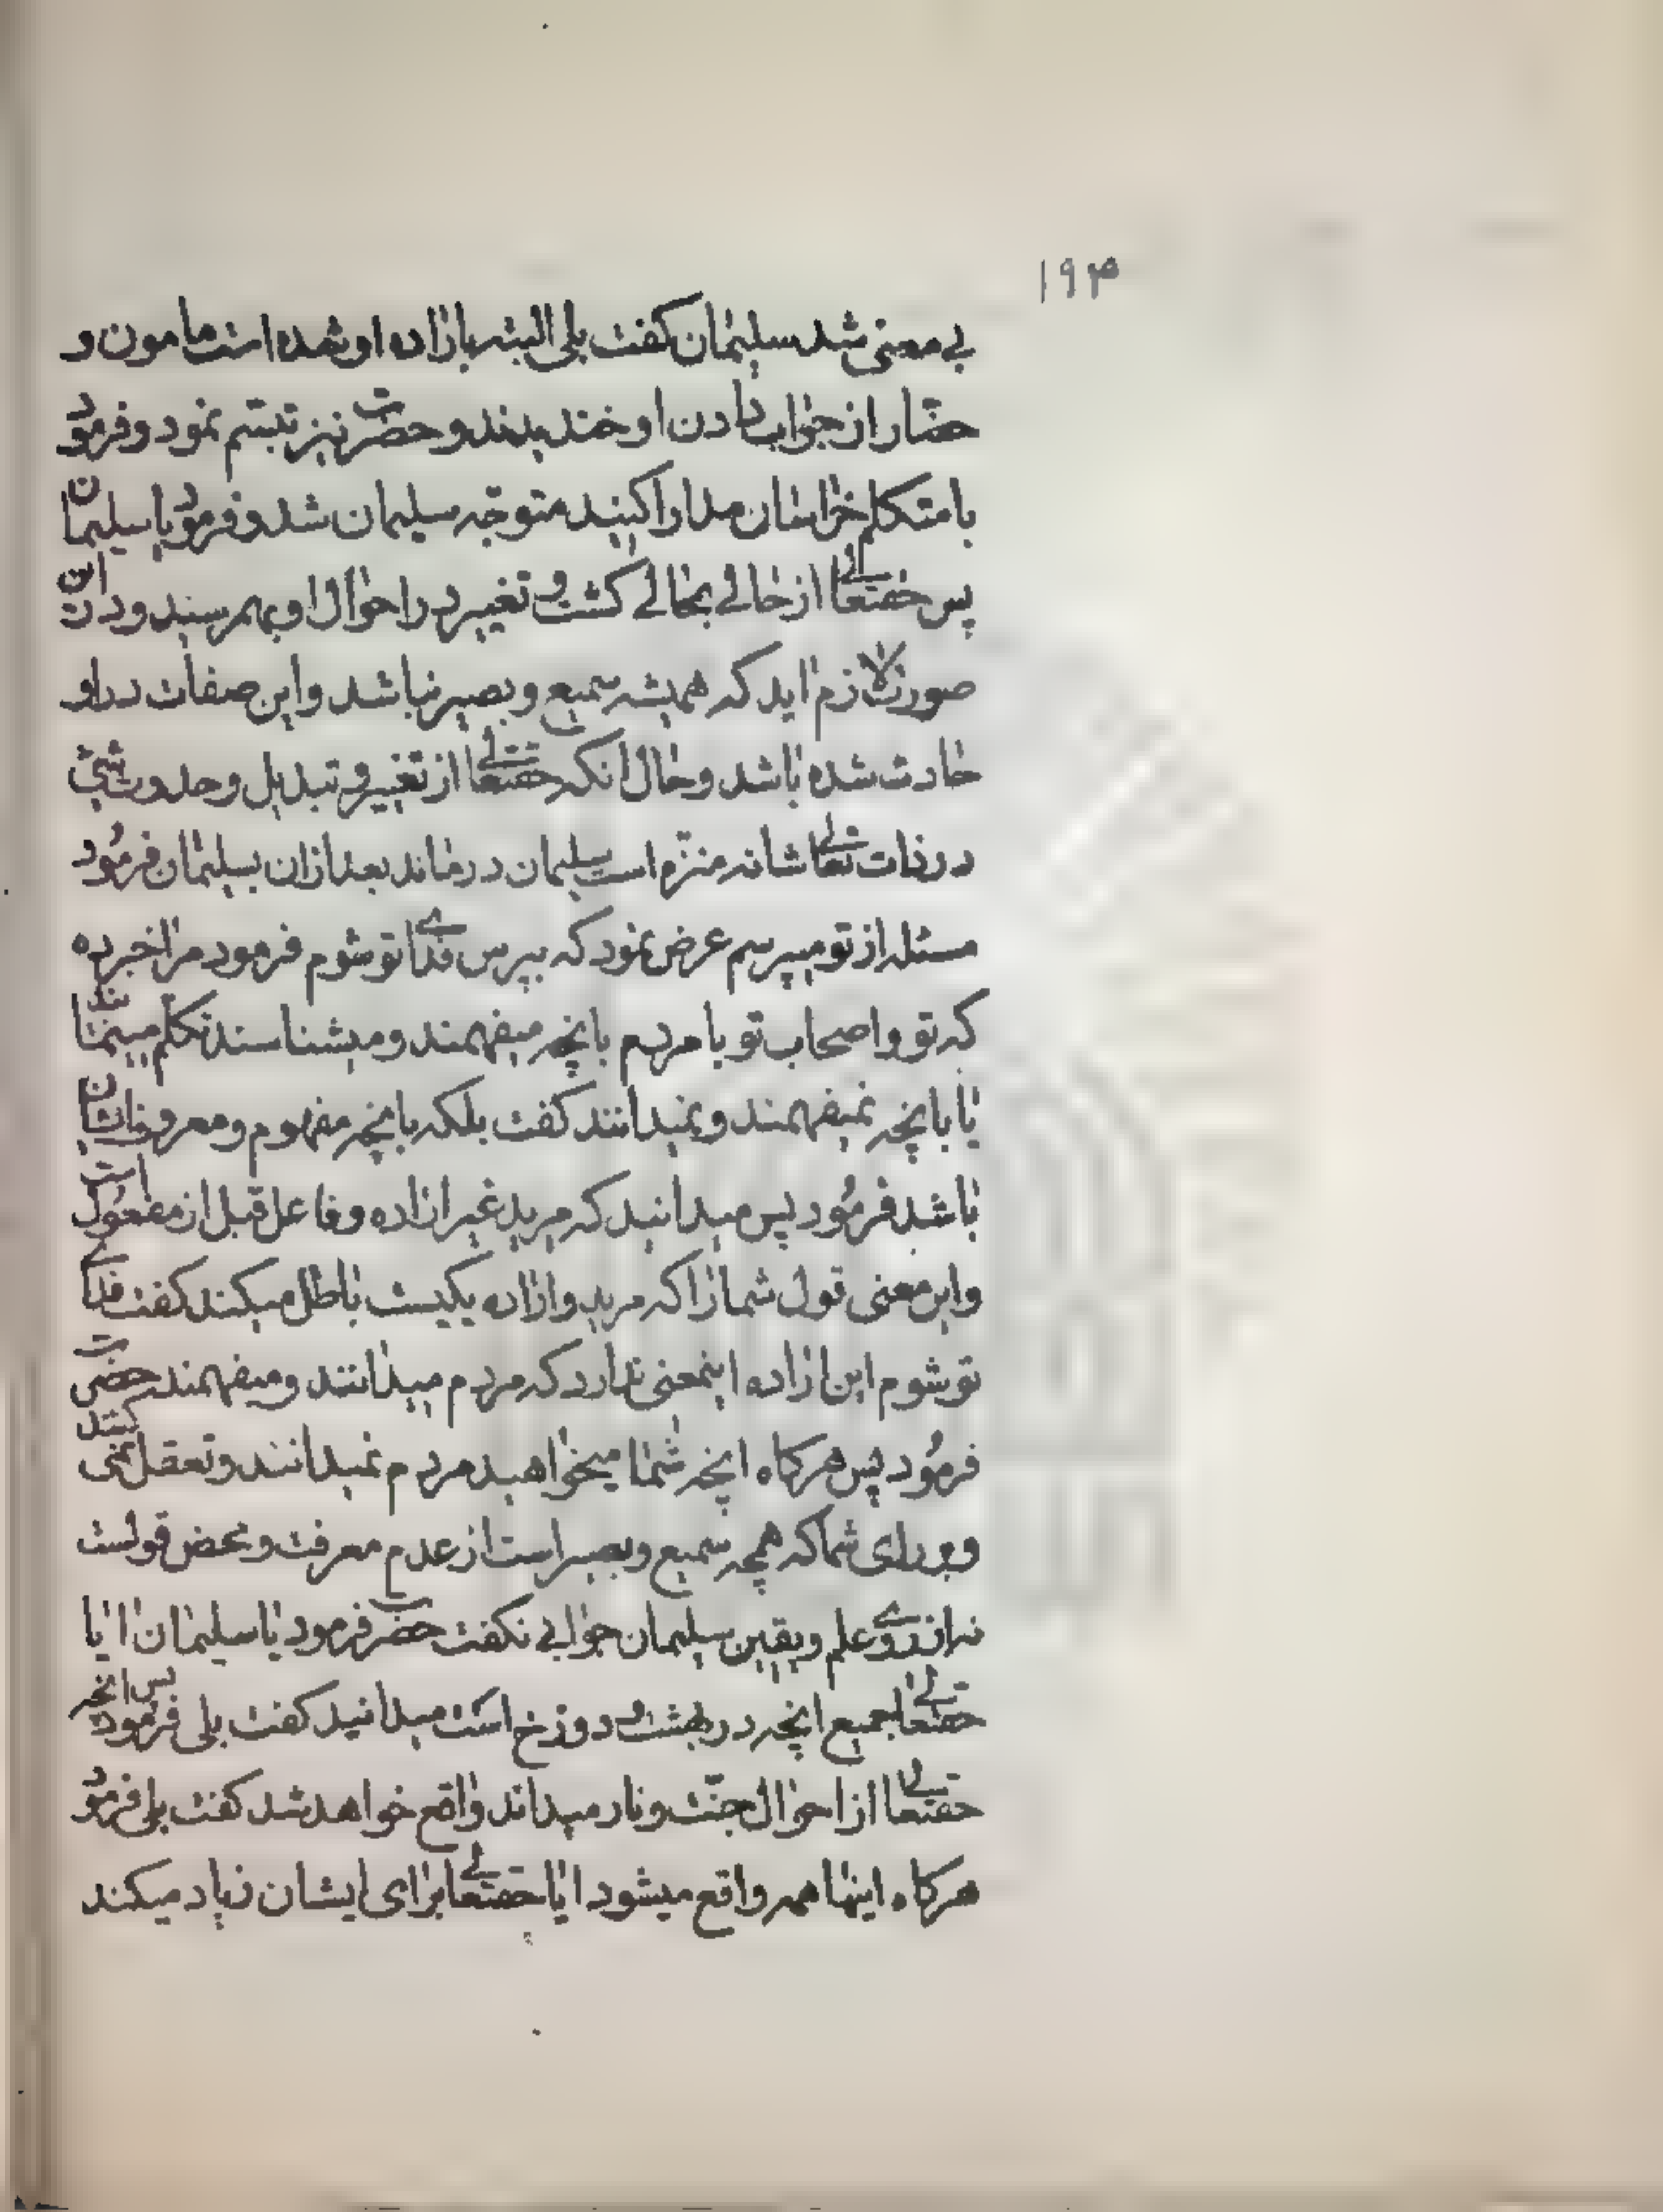 ۱۹۴
بی معنی شد سلیمان کفت بلی البته باراده او شده است مامون و
حضار از جواب دادن او خندیدند و حضرت نیز تبسّم نمود و فرمود
با متکلم خراسان مدارا کنید متوجّه سلیمان شد و فرمود یا سلیمان
پس حقتعالی از حالی بحالی کشت و تغییر در احوال او بهم رسید و در این
صورت لازم اید که همیشه سمیع و بصیر نباشد و این صفات در او
حادث شده باشد و حال انکه حقتعالی از تغییر و تبدیل و حدوث شیئ
در ذات تعالی شانه منزه است سلیمان درماند بعد ازان بسلیمان فرمُود
مسئله از تو میپرسم عرض نمود که بپرس فدای تو شوم فرمود مرا خبر ده
که تو و اصحاب تو با مردم بانچه میفهمند و میشناسند تکلّم مینمائند
یا بانچه نمیفهمند و نمیدانند کفت بلکه بانچه مفهوم و معروف ایشان
باشد فرمُود پس میدانید که مرید غیر اراده و فاعل قبل از مفعول است
و این معنی قول شما را که مرید و اراده یکیست باطل میکند کفت فدای
تو شوم این اراده اینمعنی ندارد که مردم میدانند و میفهمند حضرت
فرمُود پس هرکاه انچه شما میخواهید مردم نمیدانند و تعقل نمی کنند
و رای شما که همچه سمیع و بصیر است از عدم معرفت و محض قولست
نه از روی علم و یقین سلیمان جوابی نکفت حضرت فرمود یا سلیمان ایا
حقتعالی جمیع انچه در بهشت و دوزخ است میدانید کفت بلی فرمود پس انچه
حقتعالی از احوال جنّت و نار میداند واقع خواهد شد کفت بلی فرمود
هرکاه اینها همه واقع میشود ایا حقتعالی برای ایشان زیاد میکند